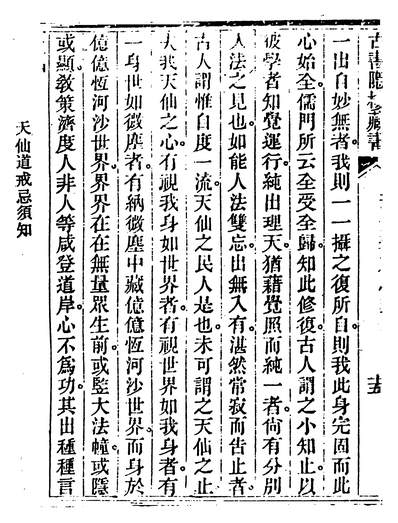 古書隱樓藏書
一出自妙無者我則一一攝之復所自則我此身完固而此
心始全儒門所云全受全歸知此修復古人謂之小知止以
彼學者知覺運行純出理天猶藉覺照而純一者尚有分別
人法之見也如能人法雙忘出無入有湛然常寂而告止者
古人謂惟自度一流天仙之民人是也未可謂之天仙之止
夫我天仙之心有視我身如世界者有視世界如我身者有
一身世如微塵者有納微塵中藏億億恆河沙世界而身於
億億恆河沙世界界界在在無量眾生前或豎大法幢或隱
或顯敎策濟度人非人等咸登道岸心不為功其出種種言
天仙道戒忌須知